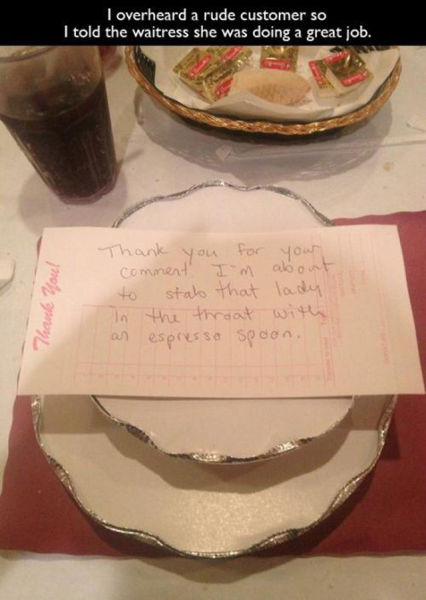 I overheard a rude customer so
I told the waitress she was doing a great job.
Thank You!
Thank you for your
comment. I'm about
to stab that lady
in the throat with
an espresso spoon.